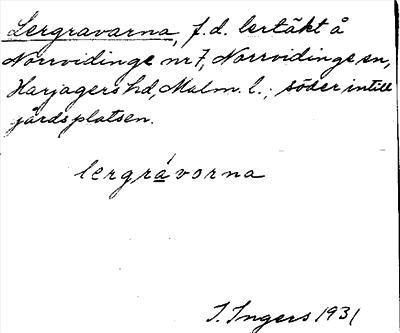 Lergravarna, f.d. lertäkt å
Norrvidinge nr 7, Norrvidinge sn,
Harjagers hd, Malm. l.; söder intill
gårdsplatsen.
lergrávorna
I. Ingers 1931